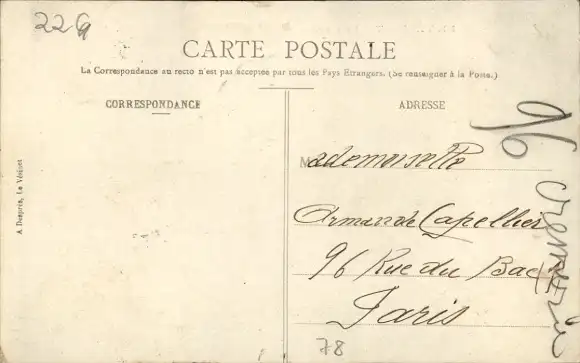 22G
CARTE POSTALE
La Correspondance au recto n'est pas acceptée par tous les Pays Etrangers. (Se renseigner à la Poste.)
CORRESPONDANCE
ADRESSE
Mademoiselle
Armande Capellier
96 Rue du Bac
Paris
A Desprès, Le Vésinet
96
78